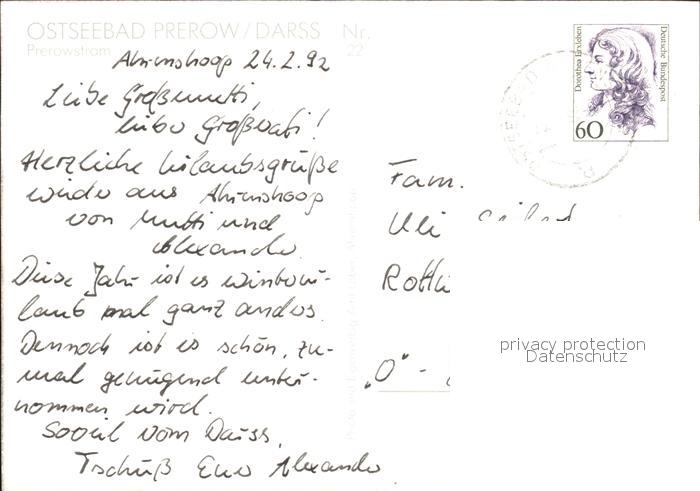 OSTSEEBAD PREROW / DARSS Nr.
Prerowstram 22
Ahrenshoop 24.2.92
Liebe Großmutti,
lieber Großvati!
Herzliche Urlaubsgrüße
wieder aus Ahrenshoop
von Mutti und
Alexander.
Diese Jahr ist es winterur-
laub mal ganz anders.
Dennoch ist es schön, zu-
mal genügend unter-
nommen wird.
Soviel vom Darss,
Tschüß Euer Alexander
Dorothea Erxleben
Deutsche Bundespost
60
Fam.
Uli
"O" -
privacy protection
Datenschutz